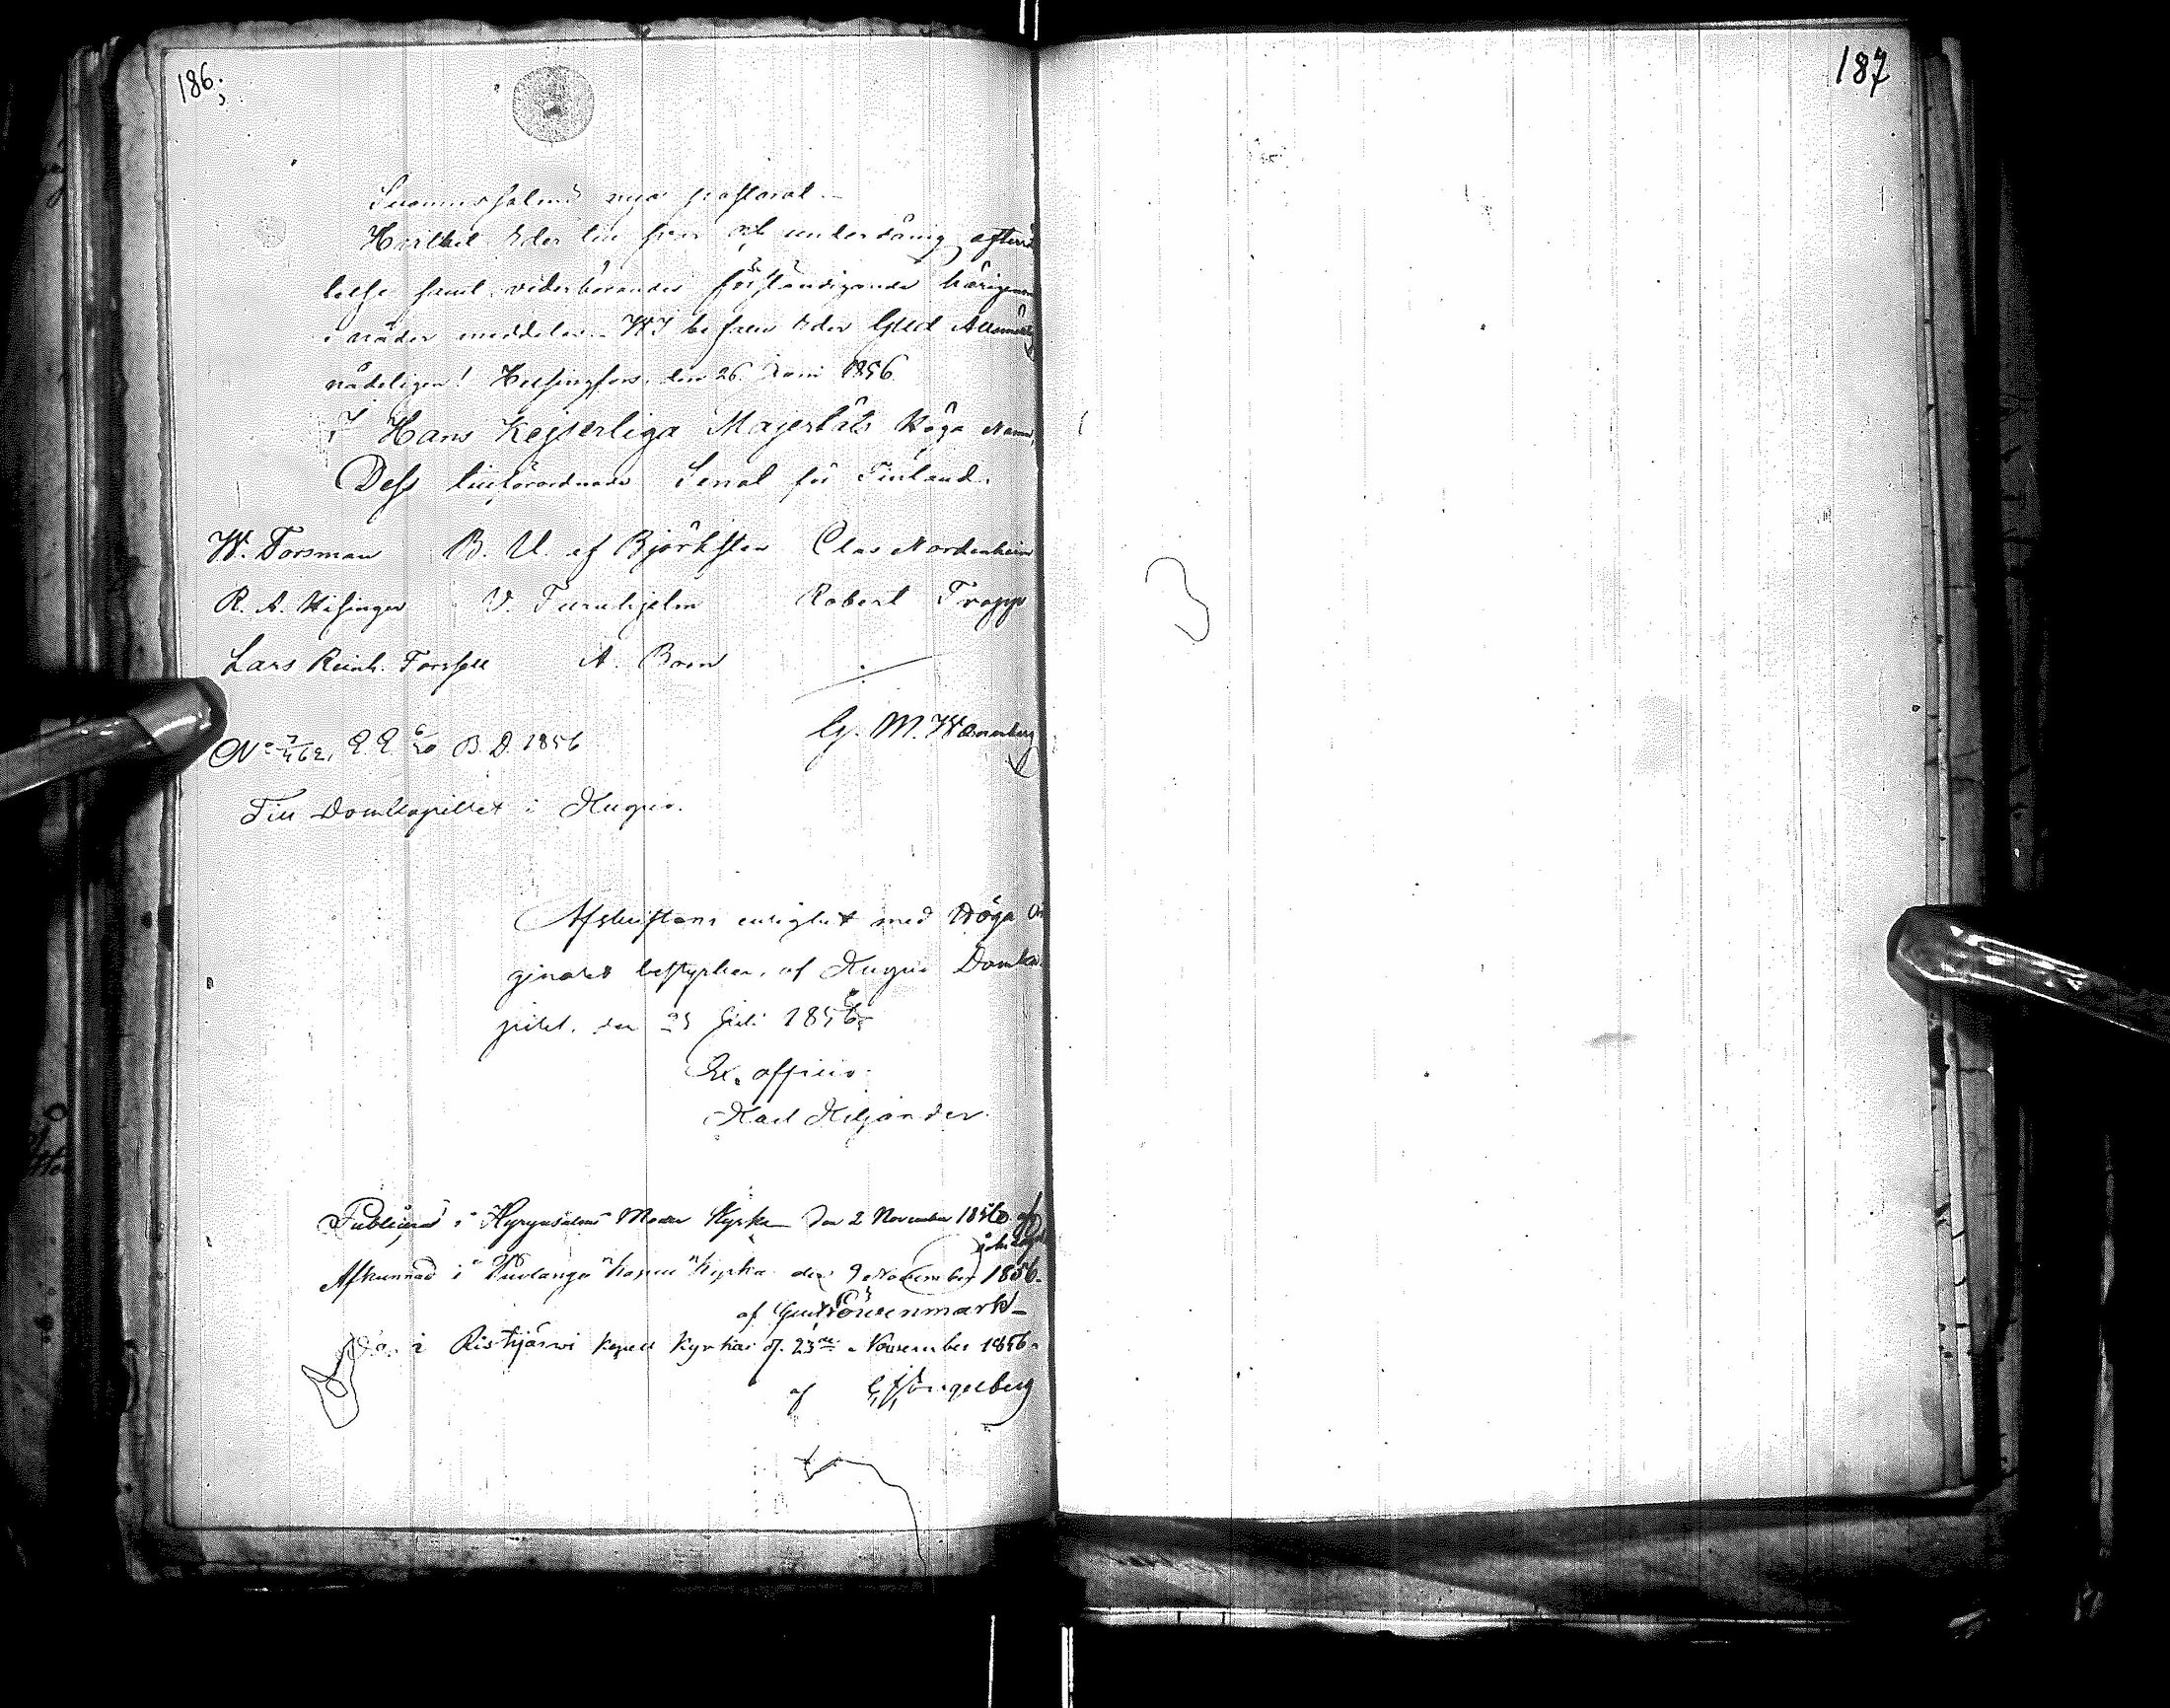 186.
187
Suomussalmi nya pastorat.
Hvilket Eder till svar och underdånig efterrät
telse samt vederbörandes förständigande härigenom
i nåder meddelas. WI befalle Eder Gud Allsmäktig
nådeligen! Helsingfors, den 26 Juni 1856.
I Hans Kejserliga Majestäts Höga Namn,
Dess tillförordnade Senat för Finland.
W. Forsman B. U. af Björksten Clas Nordenheim
R. A. Hisinger V. Furuhjelm Robert Trapp
Lars Reinh. Forssell A. Born
G. M. Wænerberg
B. D. 1856
Till Domkapitlet i Kuopio.
Afskriftens enlighet med Höga Ori
ginalet bestyrkes, af Kuopio Domka
pitel, den 25 Juli 1856.
Ex officio.
Karl Kiljander.
Publicerad i Hyrynsalmi Moder Kyrka den 2 November 1856 af
Afkunnad i Puolango Kapell Kyrka den 9 November 1856.
af Löwenmark
Do i Ristijärvi Kapell Kyrka d. 23de November 1856.
af